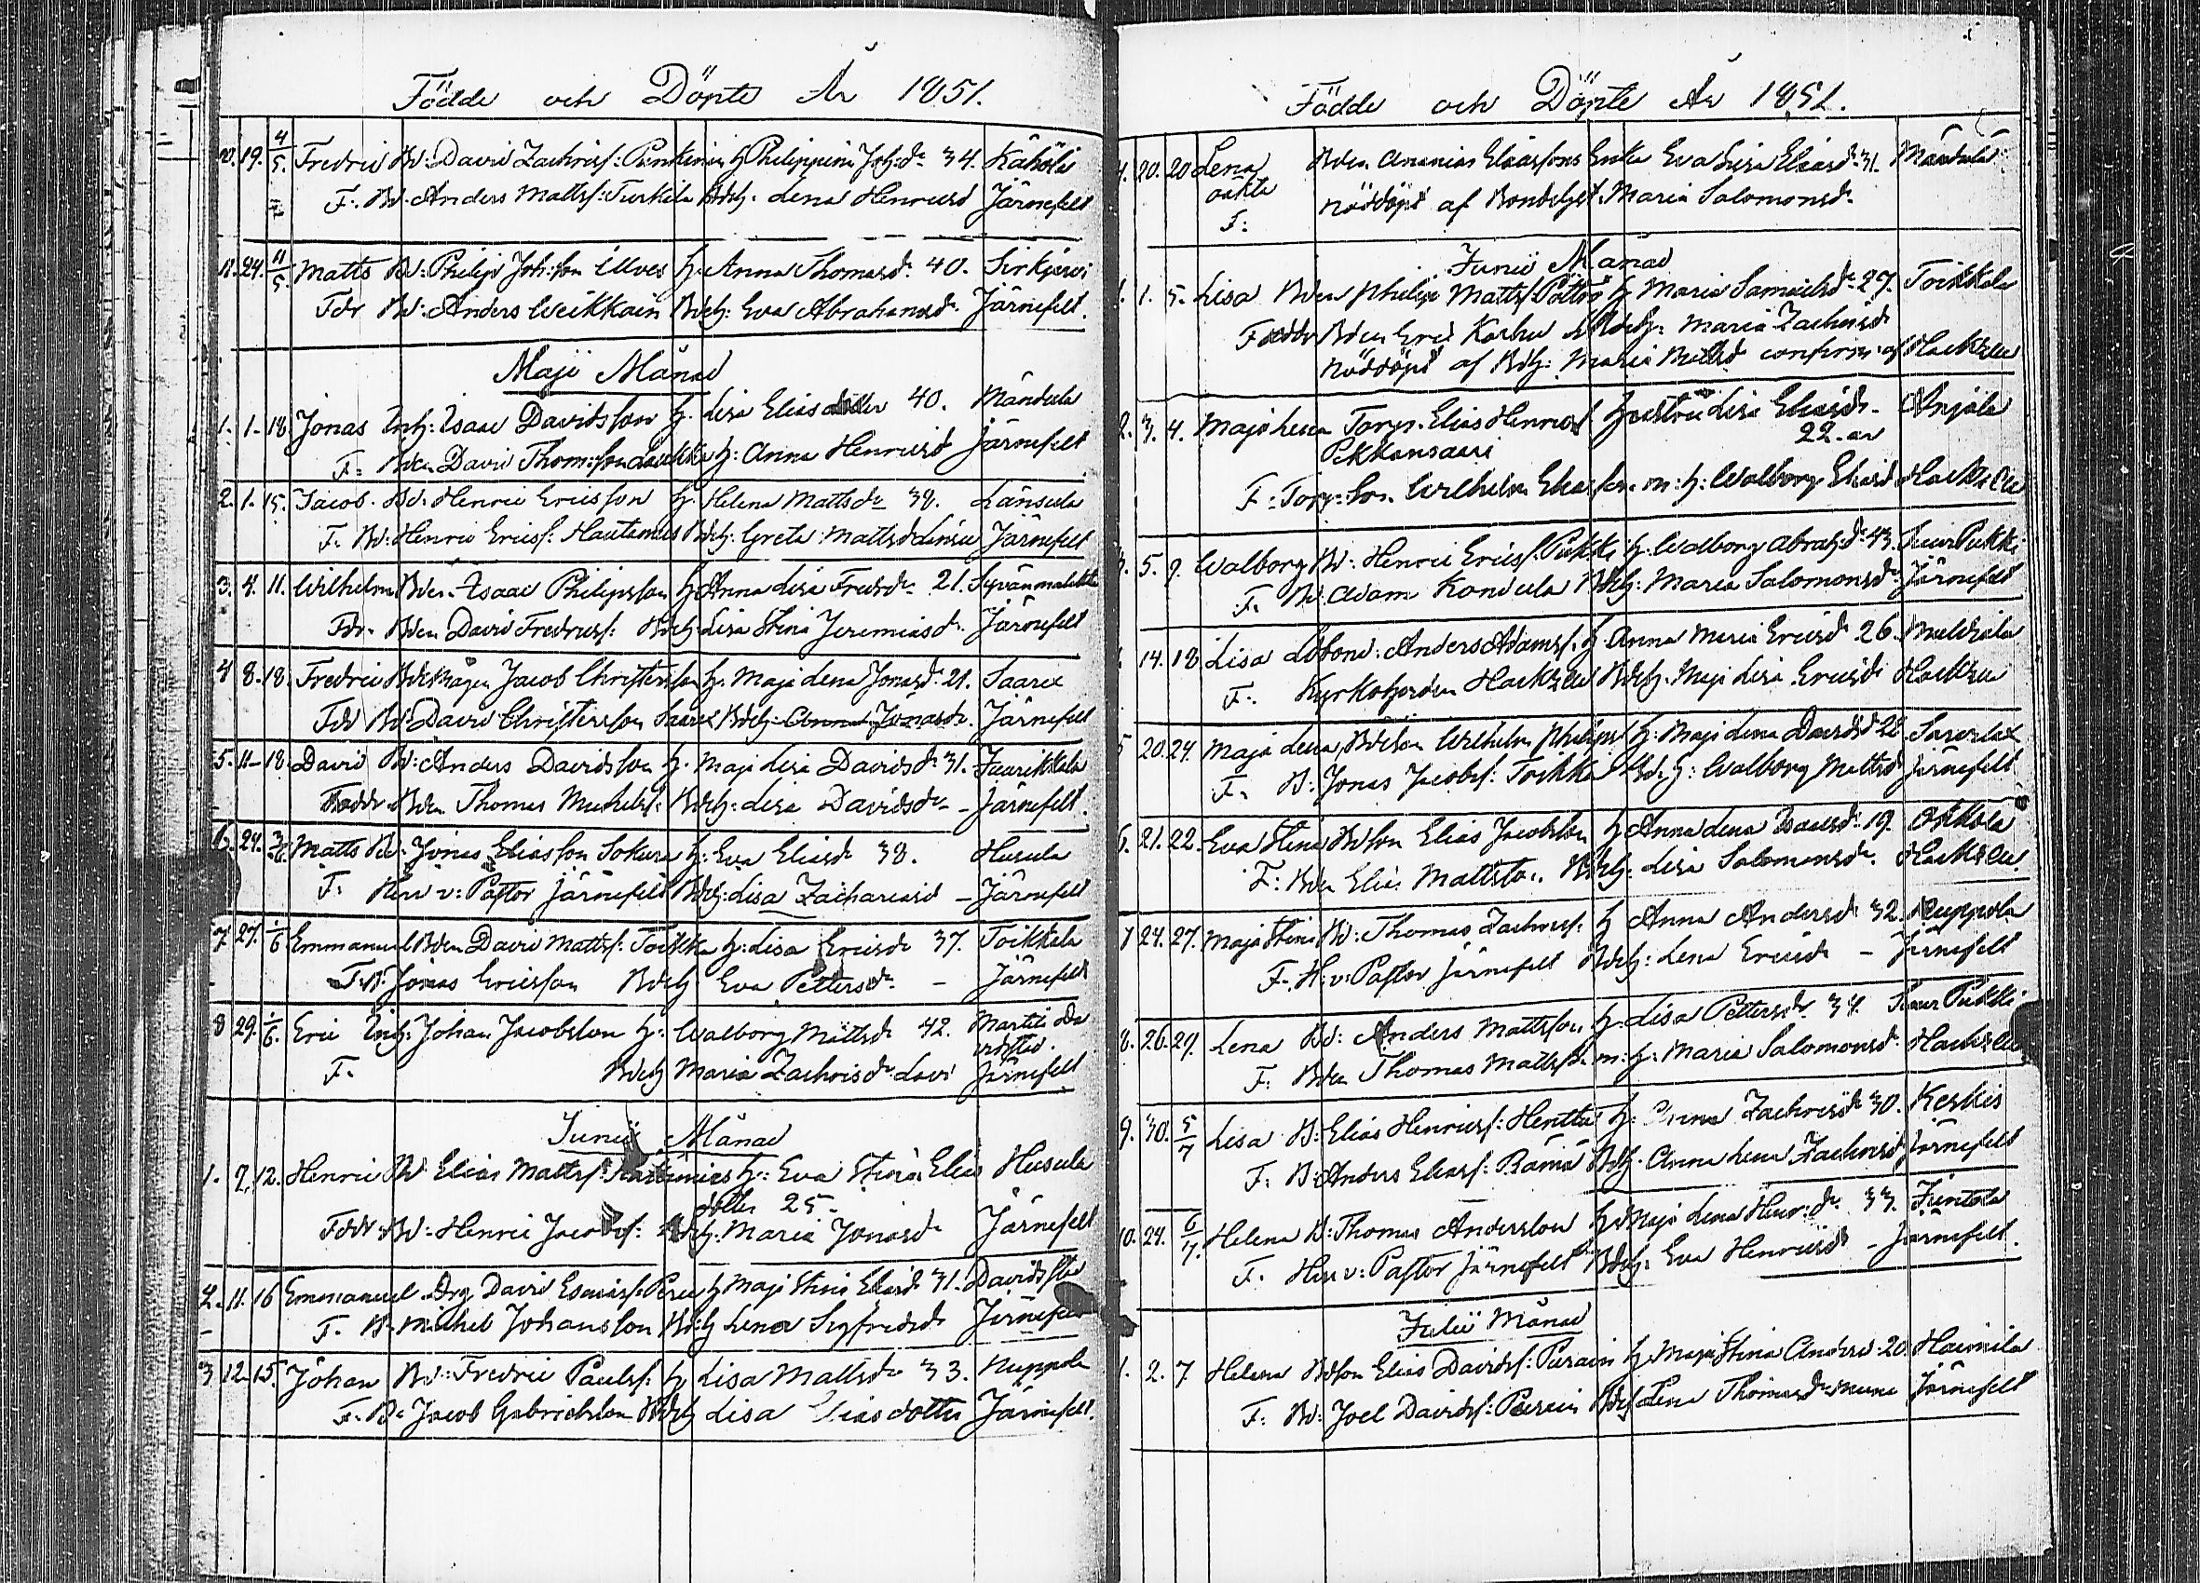 Födde och Döpte År 1851.
19. 4/5. Fredric Bd: David Zachrisf: h Philippina Joh:dr 34. Kähölä
F. Bd. Anders Mattsf: Turkila Bdrh. Lena Henricsd Järnefelt
11. 24. 11/5. Matts Bd: Philip Joh:son Ilves h. Anna Thomasdr 40. Sirkjärvi
Fdr Bd: Anders Weikkain Bdrh: Eva Abrahamsdr. Järnefelt.
Maji Månad
1. 1. 18. Jonas Inh: Isaac Davidsson h. Lisa Eliasdotter 40. Mändula
F. Bden David Thom:son h: Anna Henricsd Järnefelt
2. 1. 15. Jacob. Bd: Henric Ericsson h. Helena Mattsdr 38. Länsula
F. Bd: Henric Ericsf: Bdrh: Greta Mattsd Järnefelt
3. 4. 11. Wilhelm Bden. Isaac Philipsson h Anna Lisa Fredsdr 21.
Fdr. Bden David Fredricsf: Bdrh Lisa Stina Jeremiasd. Järnefelt
4 8. 18. Fredric Jacob Christersson h. Maja Lena Jonasd. 21. Saarex
Fdr Bd: David Christersson Saarex Bdrh: Anna Jonasdr. Järnefelt
5. 11 - 18. David Bd: Anders Davidsson h. Maja Lisa Davidsdr 31. Juurikkala
Faddr Bden Thomas Michelsf: Bdrh: Lisa Davidsdr - Järnefelt.
6. 24. Matts Bd: Jonas Eliasson Sokura h: Eva Eliasdr 38. Husula
F: Herr v: Pastor Järnefelt Bdrh: Lisa Zachariasd - Järnefelt
7 27. 1/6 Emmanuel Bden David Mattsf: Toikka h: Lisa Ericsdr 37. Toikkala
F. B. Jonas Ericsson Bdrh Eva Pettersdr. - Järnefelt
8 29. 1/6. Eric Inh: Johan Jacobsson h: Walborg Mattsdr 42. Martti
F. Bdrh Maria Zachrisdr Järnefelt
Junii Månad
1. 9. 12. Henric Bd: Elias Mattsf: h: Eva Stina Elias Husula
dotter 25.
Fdr: Bd: Henric Jacobsf: Bdrh: Maria Jonasdr Järnefelt
2. 11. 16 Emmanuel. Drg David h Maja Stina Eliasd 31. Davidsstad
F. B. Michel Johansson Bdrh Lena Sigfridsdr Järnefelt
3 12. 15. Johan Bd: Fredric Paulsf: h Lisa Mattsdr 33. Nuppola
F. B: Jacob Gabrielsson Bdrh Lisa Eliasdotter Järnefelt.
Födde och Döpte År 1851.
20. 20 Lena Bden Ananias Eliassons Enka Eva Lisa Eliasd. 31. Mändula
oäkta nöddöpt af Maria Salomonsd.
F:
Junii Månad
1. 5. Lisa Bden Philip Mattsf. h Maria Samuelsdr 27. Toikkala
Faddr Bden Eric Karhu Bdrh: Maria Zachrisd
nöddöpt af Bdh: Maria Mattsd confirm. af Hackzell
2. 3. 4. Maja Lena Torp. Elias Henricsf hustru Lisa Eliasdr - Anjala
Pekkansaari 22. år
F: Torp: Son. Wilhelm m: h: Walborg Eliasd Hackzell
5. 9. Walborg Bd: Henric Ericsf. Pukki h. Walborg Abrah:dr 43. Pukki
F. Bd. Adam Kondula Bdrh: Maria Salomonsdr. Järnefelt
14. 18 Lisa Anders Adamsf. h Anna Maria Ericsdr 26.
F. Kyrkoherden Hackzell Bdrh. Maja Lisa Ericsdr Hackzell
5 20. 24. Maja Lena Bdeson Wilhelm Philipsf h: Maja Lena Davidsd 22. Saverlax
F. B: Jonas Jacobsf: Toikka Bdrh: Walborg Mattsd Järnefelt
6. 21. 22. Eva Stina Bdson Elias Jacobsson h Anna Lena Isaacsd: 19. Askola
F: Bden Elias Mattsson. Bdrh: Lisa Salomonsdr. Hackzell.
7 24. 27. Maja Stina Bd: Thomas Zachrisf. h Anna Andersdr 32. Nuppola
F. H: v: Pastor Järnefelt Bdrh: Lena Ericsdr - Järnefelt
8. 26. 29. Lena Bd: Anders Mattsson h: Lisa Pettersdr 34. Pukki
F: Bden Thomas Mattsson m: h: Maria Salomonsdr. Hackzell
9. 30. 5/7 Lisa B: Elias Henricsf: Henttu h: Anna Zachrisdr 30. Keskis
F: B: Anders Eliasf: Rämä Bdrh. Anna Lena Zachrisd Järnefelt
10. 24. 6/7. Helena B: Thomas Andersson h Maja Lena Henr:dr 33. Juntola
F. Herr v: Pastor Järnefelt Bdrh. Eva Henricsdr - Järnefelt.
Julii Månad
1. 2. 7 Helena Bdson Elias Davidsf: Purain h. Maja Stina Andersd. 20. Haimila
F: Bd: Joel Davidsf: Purain Bdrh Lena Thomasdr Järnefelt